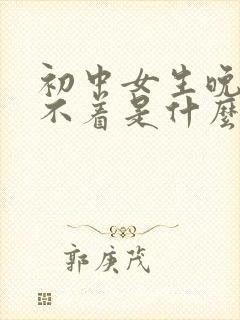 初中女生晚
不着是什麼
郭庚茂